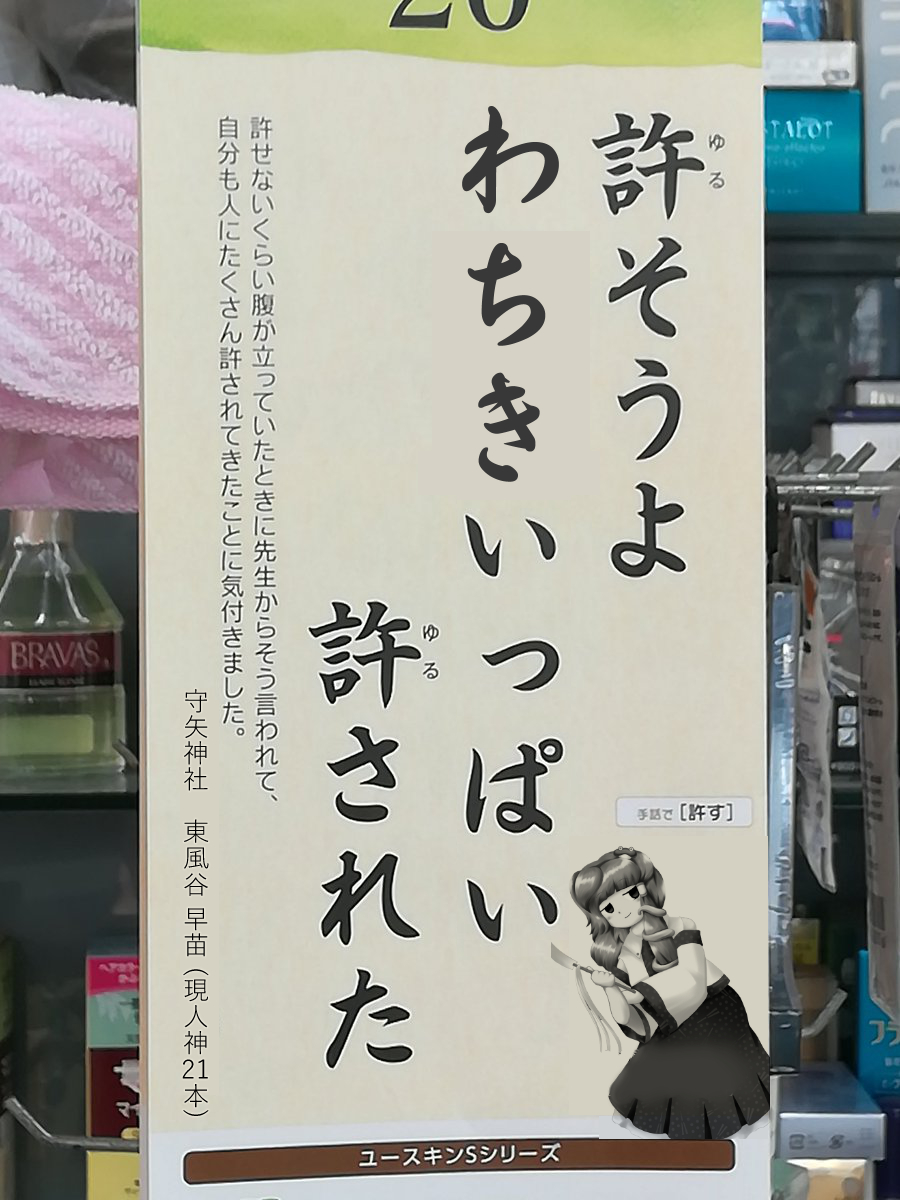 許そうよ
ゆる
わちきいっぱい
許された
ゆる
許せないくらい腹が立っていたときに先生からそう言われて、
自分も人にたくさん許されてきたことに気付きました。
守矢神社 東風谷 早苗 (現人神21本)
手話で [許す]
ユースキンSシリーズ
BRAVAS